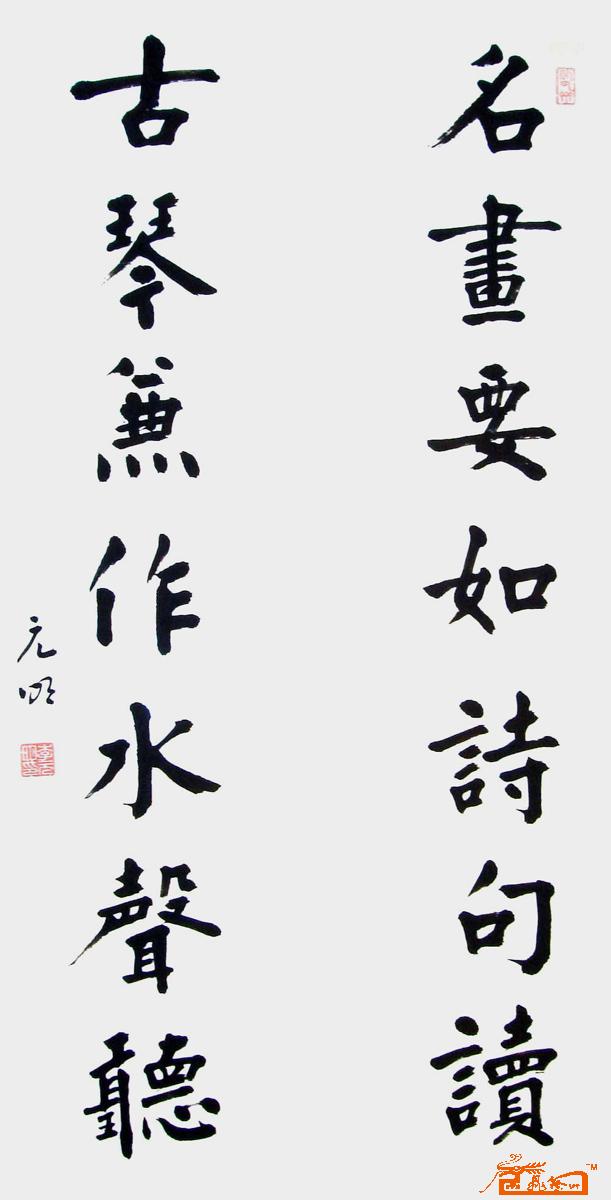 名畫要如詩句讀
古琴兼作水聲聽
元明